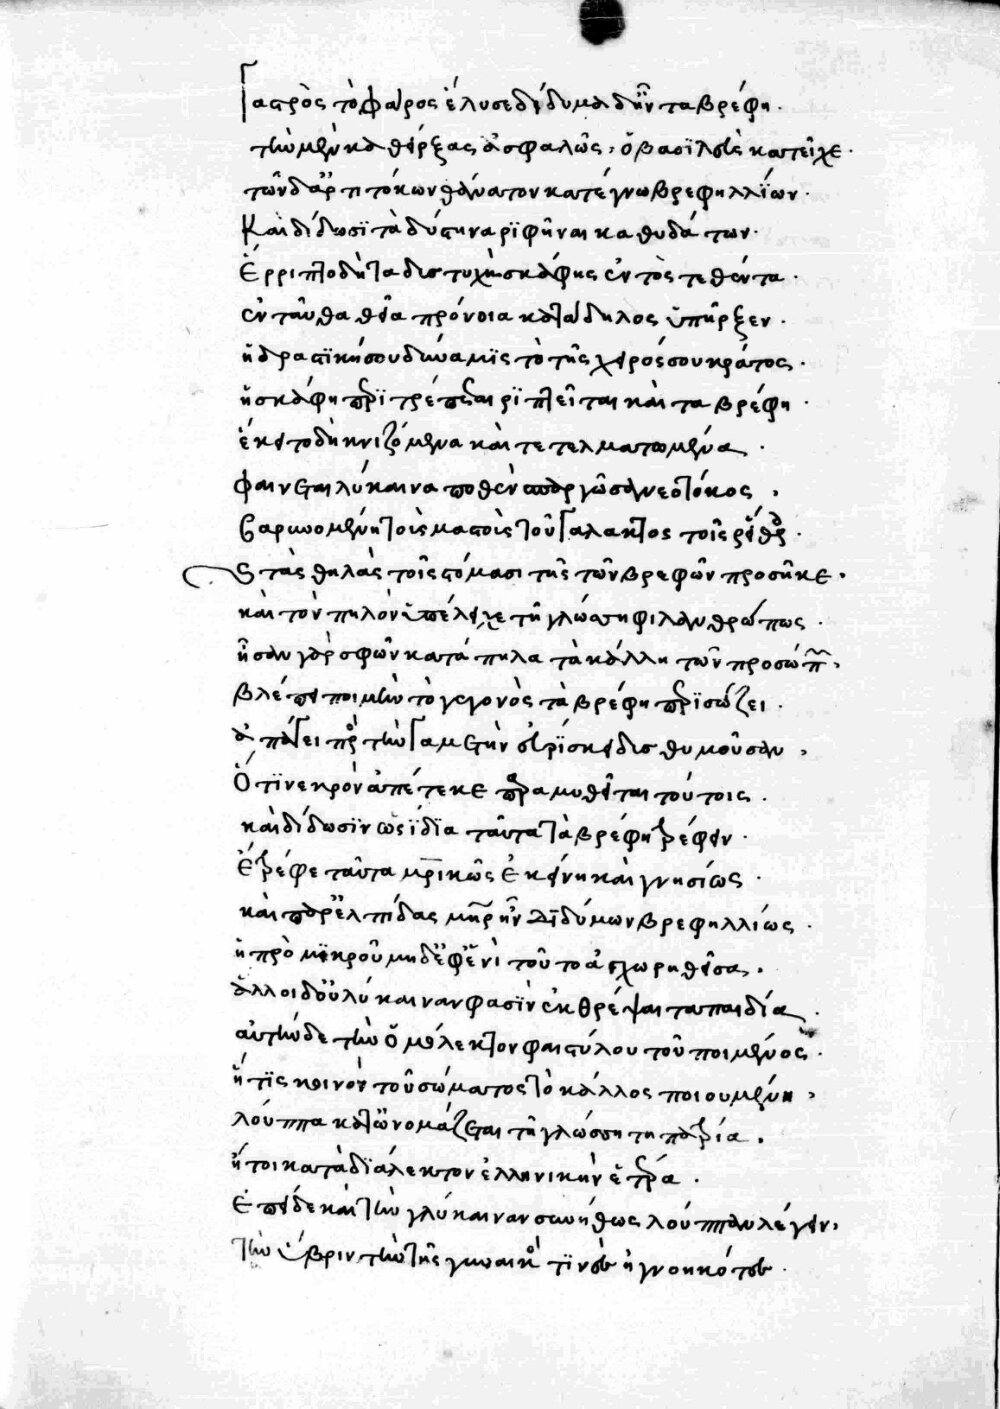 Γαστρὸς τὸ φάρος ἔλυσε δίδυμα δ' ἦν τὰ βρέφη·
τὴν μὲν καθείρξας ἀσφαλῶς, ὁ βασιλεὺς κατεῖχε·
τῶν δ' ἀρτιτόκων θάνατον κατέγνω βρεφηλλίων·
Καὶ δίδωσι τὰ δύστηνα ριφῆναι καθ' ὑδάτων·
Ἐρρίπτο δῆτα δυστυχῆ σκάφης ἐντὸς τεθέντα·
ἐνταῦθα θεία πρόνοια κατάδηλος ὑπῆρξεν·
ἡ δραστικὴ σου δύναμις τὸ τῆς χειρός σου κράτος·
ἡ σκάφη περιτρέπεται ριπτεῖται καὶ τὰ βρέφη·
ἔκειτο δὴ κνιζόμενα καὶ τετελματωμένα·
φαίνεται λύκαινα ποθὲν σπαργῶσα νεοτόκος,
βαρυνομένη τοῖς μαστοῖς τοῦ γάλακτος τοῖς ῥείθροις·
τὰς θηλὰς τοῖς στόμασι τῆς τῶν βρεφῶν προσῆκε·
καὶ τὸν πηλὸν ὑπέλειχε τῇ γλώσσῃ φιλανθρώπως·
ἦσαν γὰρ σφῶν κατάπηλα τὰ κάλλη τῶν προσώπων,
βλέπει ποιμὴν τὸ γεγονὸς τὰ βρέφη περισώζει·
ἀπάγει πρὸς τὴν γαμετὴν εὑρίσκει δυσθυμοῦσαν,
Ὅτι νεκρὸν ἀπέτεκε παραμυθεῖται τούτοις·
καὶ δίδωσιν ὡς ἴδια ταῦτα τὰ βρέφη τρέφειν·
Ἔτρεφε ταῦτα μητρικῶς ἐκείνη καὶ γνησίως·
καὶ παρ' ἐλπίδας μήτηρ ἦν διδύμων βρεφηλλίως·
ἡ πρὸ μικροῦ μηδ' ἐφ' ἑνὶ τοῦτο ἀσχωρηθεῖσα·
ἀλλ' οἱ δ' οὐ λύκαιναν φασὶν ἐκθρέψαι τὰ παιδία·
αὐτὴν δὲ τὴν ὁμόλεκτον φαιστύλου τοῦ ποιμένος·
ἥτις κοινὸν τοῦ σώματος τὸ κάλλος ποιουμένη,
λούππα κατωνομάζεται τῇ γλώσσῃ τῇ πατρίᾳ·
ἤτοι κατὰ διάλεκτον ἑλληνικὴν ἑταίρα·
Ἐπεὶ δὲ καὶ τὴν λύκαιναν συνήθως λούππαν λέγειν,
τὴν ὕβριν τὴν τῆς γυναικὸς τινὲς ἠγνοηκότες·